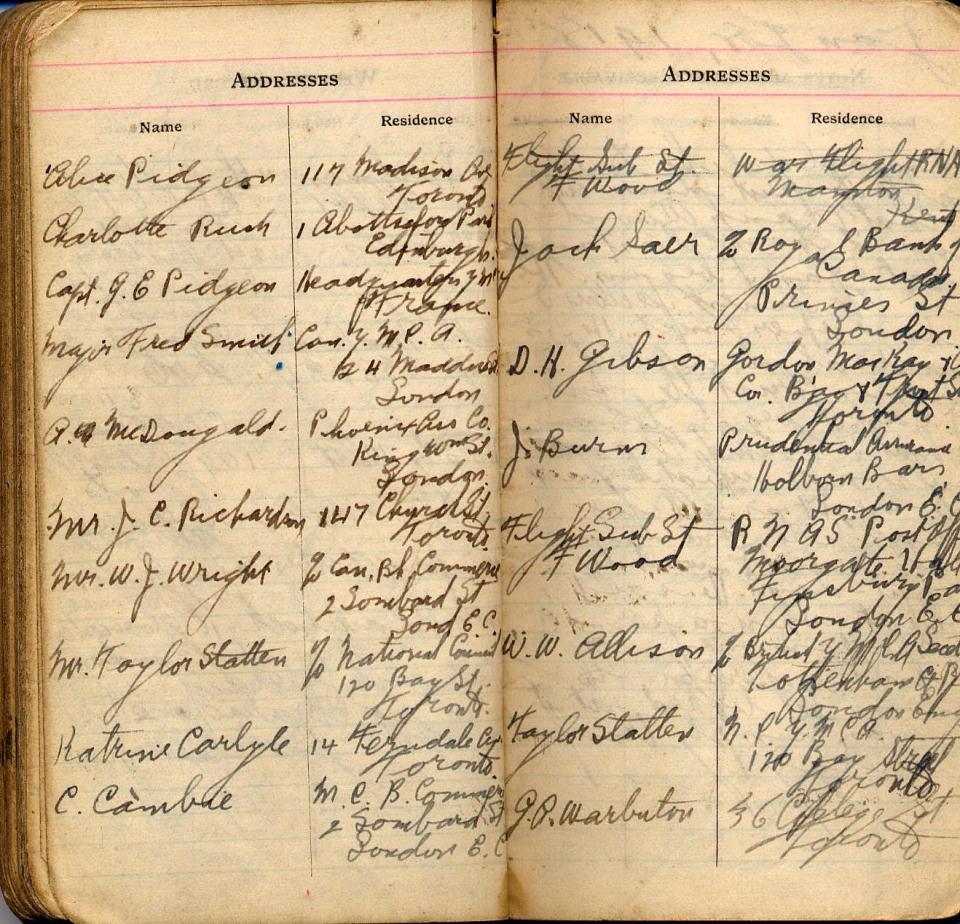 ADDRESSES
Name Residence
Alice Pidgeon 117 Madison Av
Toronto
Charlotte Rush 1 Abottsford Park
Edinburgh.
Capt. G. E Pidgeon Headquarters
France.
Major Fred Smith Can. Y. M. C. A.
Maddox
London
McDougald. Phoenix Ass Co.
King Wm St.
London.
Mr. J. C. Richardson 147 Church St.
Toronto.
W. J. Wright c/o Can. Bk. Commerce
2 Lombard St
Lond E. C.
Mr. Taylor Statten c/o National Council
120 Bay St.
Toronto.
Katrine Carlyle 14 Ferndale Av.
Toronto.
C. Cambie M. C. B. Commerce
2 Lombard St
London E. C
ADDRESSES
Name Residence
Flight Sub Lt. War Flight RNA
F Wood Manston
Kent
Jack Saer c/o Royal Bank of
Canada
Princes St
London
D. H. Gibson Gordon MacKay & C
Cor. Bay & Front St
Toronto
J. Burns Prudential Assurance
Holborn Bars
London E. C
Flight Sub Lt R N A S Post Off
F Wood Moorgate Hall
Finsbury Pa
London E. C
W. W. Allison c/o British Y M C A
Tottenham Ct
London Eng
Taylor Statten N. C. Y. M C A.
120 Bay Street
Toronto
G. A. Warburton 36 College St
Toronto